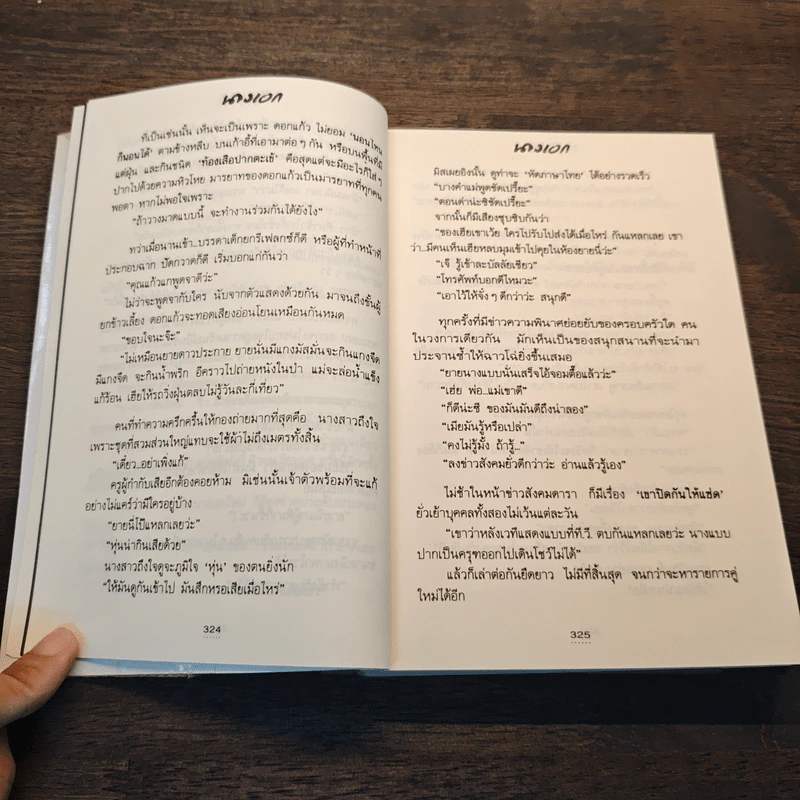 นางเอก
ที่เป็นเช่นนั้น เห็นจะเป็นเพราะ ดอกแก้ว ไม่ยอม 'นอนไหน
ก็นอนได้' ตามข้างหลืบ บนเก้าอี้ที่เอามาต่อๆ กัน หรือบนพื้นที่มี
แต่ฝุ่น และกินชนิด 'ท้องเสือปากตะเข้' คือสุดแต่จะมีอะไรก็ใส่ๆ
ปากไปด้วยความหิวโหย มารยาทของดอกแก้วเป็นมารยาทที่ทุกคน
พอตา หากไม่พอใจเพราะ
"ถ้าวางมาดแบบนี้ จะทำงานร่วมกันได้ยังไง"
ทว่าเมื่อนานเข้า...บรรดาเด็กยกรีเฟลกซ์ก็ดี หรือผู้ที่ทำหน้าที่
ประกอบฉาก ปัดกวาดก็ดี เริ่มบอกแก่กันว่า
"คุณแก้วแกพูดจาดีว่ะ"
ไม่ว่าจะพูดจากับใคร นับจากตัวแสดงด้วยกัน มาจนถึงชั้นผู้
ยกข้าวเลี้ยง ดอกแก้วจะทอดเสียงอ่อนโยนเหมือนกันหมด
"ขอบใจนะจ๊ะ"
"ไม่เหมือนยายดาวประกาย ยายนั่นมีแกงมัสมั่นจะกินแกงจืด
มีแกงจืด จะกินน้ำพริก อีคราวไปถ่ายหนังในป่า แม่จะล่อน้ำแข็ง
แก้ร้อน เฮียให้รถวิ่งฝุ่นตลบไม่รู้วันละกี่เที่ยว"
คนที่ทำความครึกครื้นให้กองถ่ายมากที่สุดคือ นางสาวถึงใจ
เพราะชุดที่สวมส่วนใหญ่แทบจะใช้ผ้าไม่ถึงเมตรทั้งสิ้น
"เดี๋ยว...อย่าเพิ่งแก้"
ครูผู้กำกับเสียอีกต้องคอยห้าม มิเช่นนั้นเจ้าตัวพร้อมที่จะแก้
อย่างไม่แคร์ว่ามีใครอยู่บ้าง
"ยายนี่โป๊แหลกเลยว่ะ"
"หุ่นน่ากินเสียด้วย"
นางสาวถึงใจดูจะภูมิใจ 'หุ่น' ของตนยิ่งนัก
"ให้มันดูกันเข้าไป มันสึกหรอเสียเมื่อไหร่"
324
นางเอก
มิสเผยอิงนั้น ดูท่าจะ 'หัดภาษาไทย' ได้อย่างรวดเร็ว
"บางคำแม่พูดชัดเปรี๊ยะ"
"ตอนด่าน่ะซิชัดเปรี๊ยะ"
จากนั้นก็มีเสียงซุบซิบกันว่า
"ของเฮียเขาเว้ย ใครไปรับไปส่งได้เมื่อไหร่ กันแหลกเลย เขา
ว่า...มีคนเห็นเฮียหลบมุมเข้าไปคุยในห้องยายนี่ว่ะ"
"เจ๊ รู้เข้าละบัลลัยเชียว"
"โทรศัพท์บอกดีไหมวะ"
"เอาไว้ให้จั๋งๆ ดีกว่าว่ะ สนุกดี"
ทุกครั้งที่มีข่าวความพินาศย่อยยับของครอบครัวใด คน
ในวงการเดียวกัน มักเห็นเป็นของสนุกสนานที่จะนำมา
ประจานซ้ำให้ฉาวโฉ่ยิ่งขึ้นเสมอ
"ยายนางแบบนั่นเสร็จไอ้จอมตื๊อแล้วว่ะ"
"เฮ่ย พ่อ...แม่เขาดี"
"ก็ดีน่ะซี ของมันมันดีถึงน่าลอง"
"เมียมันรู้หรือเปล่า"
"คงไม่รู้มั้ง ถ้ารู้..."
"ลงข่าวสังคมยั่วดีกว่าว่ะ อ่านแล้วรู้เอง"
ไม่ช้าในหน้าข่าวสังคมดารา ก็มีเรื่อง 'เขาปิดกันให้แซ่ด'
ยั่วเย้าบุคคลทั้งสองไม่เว้นแต่ละวัน
"เขาว่าหลังเวทีแสดงแบบที่ที.วี. ตบกันแหลกเลยว่ะ นางแบบ
ปากเป็นครุฑออกไปเดินโชว์ไม่ได้"
แล้วก็เล่าต่อกันยืดยาว ไม่มีที่สิ้นสุด จนกว่าจะหารายการคู่
ใหม่ได้อีก
325